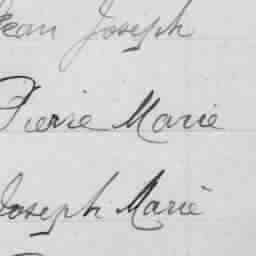 Jean Joseph
Pierre Marie
Joseph Marie